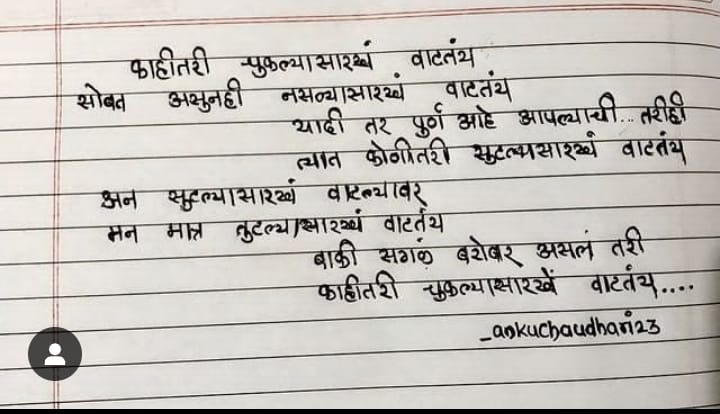 काहीतरी चुकल्यासारखं वाटतंय
सोबत असुनही नसल्यासारखं वाटतंय
यादी तर पुर्ण आहे आपल्याची... तरीही
त्यात कोणीतरी सुटल्यासारखं वाटतंय
अन सुटल्यासारखं वाटल्यावर
मन मात्र तुटल्यासारखं वाटतंय
बाकी सगळं बरोबर असलं तरी
काहीतरी चुकल्यासारखें वाटतंय....
_ankuchaudhari23